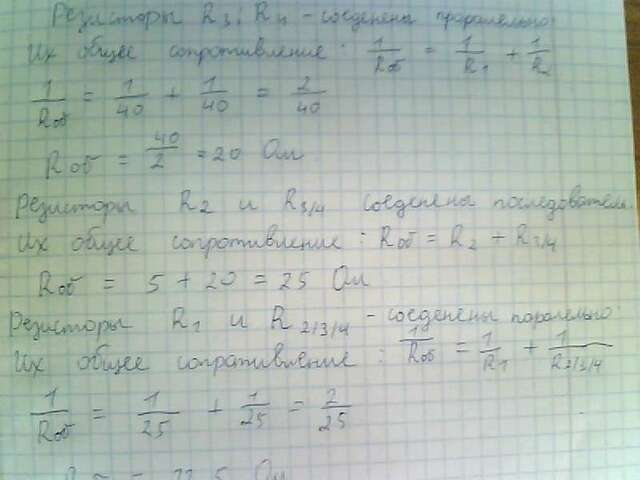 Резисторы R3 и R4 - соеденены проралельно
Их общее сопротивление : 1/Rоб = 1/R1 + 1/R
1/Rоб = 1/40 + 1/40 = 2/40
Rоб = 40/2 = 20 Ом
Резисторы R2 и R3/4 соеденены последователь.
Их общее сопротивление : Rоб = R2 + R3/4
Rоб = 5 + 20 = 25 Ом
Резисторы R1 и R2/3/4 - соеденены паролельно
Их общее сопративление : 1/Rоб = 1/R1 + 1/R2/3/4
1/Rоб = 1/25 + 1/25 = 2/25